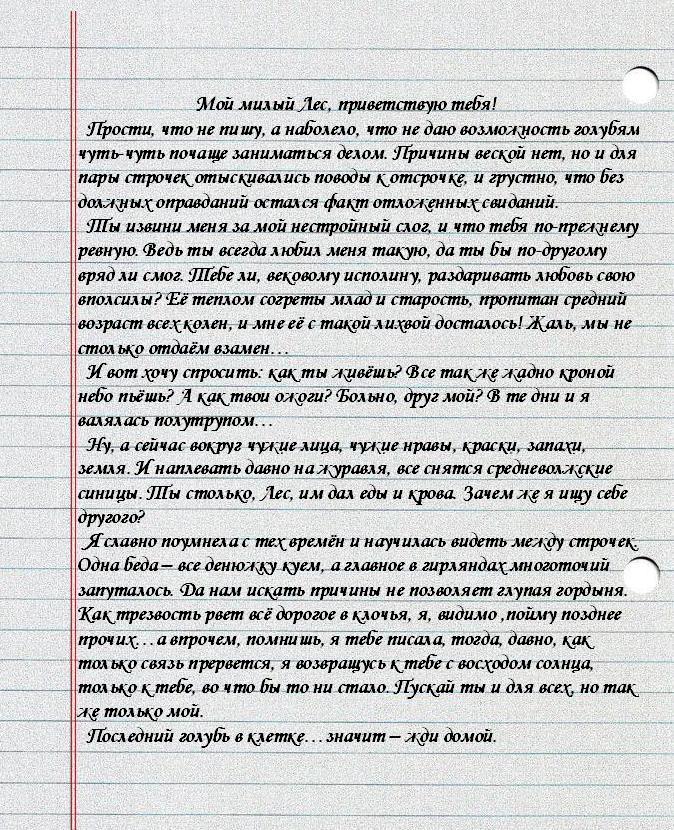 Мой милый Лес, приветствую тебя!
Прости, что не пишу, а наболело, что не даю возможность голубям
чуть-чуть почаще заниматься делом. Причины веской нет, но и для
пары строчек отыскивались поводы к отсрочке, и грустно, что без
должных оправданий остался факт отложенных свиданий.
Ты извини меня за мой нестройный слог, и что тебя по-прежнему
ревную. Ведь ты всегда любил меня такую, да ты бы по-другому
вряд ли смог. Тебе ли, вековому исполину, раздаривать любовь свою
вполсилы? Её теплом согреты млад и старость, пропитан средний
возраст всех колен, и мне её с такой лихвой досталось! Жаль, мы не
столько отдаём взамен…
И вот хочу спросить: как ты живёшь? Все так же жадно кроной
небо пьёшь? А как твои ожоги? Больно, друг мой? В те дни и я
валялась полутрупом…
Ну, а сейчас вокруг чужие лица, чужие нравы, краски, запахи,
земля. И наплевать давно на журавля, все снятся средневолжские
синицы. Ты столько, Лес, им дал еды и крова. Зачем же я ищу себе
другого?
Я славно поумнела с тех времён и научилась видеть между строчек.
Одна беда – все денюжку куем, а главное в гирляндах многоточий
запуталось. Да нам искать причины не позволяет глупая гордыня.
Как трезвость рвет всё дорогое в клочья, я, видимо ,пойму позднее
прочих…а впрочем, помнишь, я тебе писала, тогда, давно, как
только связь прервется, я возвращусь к тебе с восходом солнца,
только к тебе, во что бы то ни стало. Пускай ты и для всех, но так
же только мой.
Последний голубь в клетке…значит – жди домой.